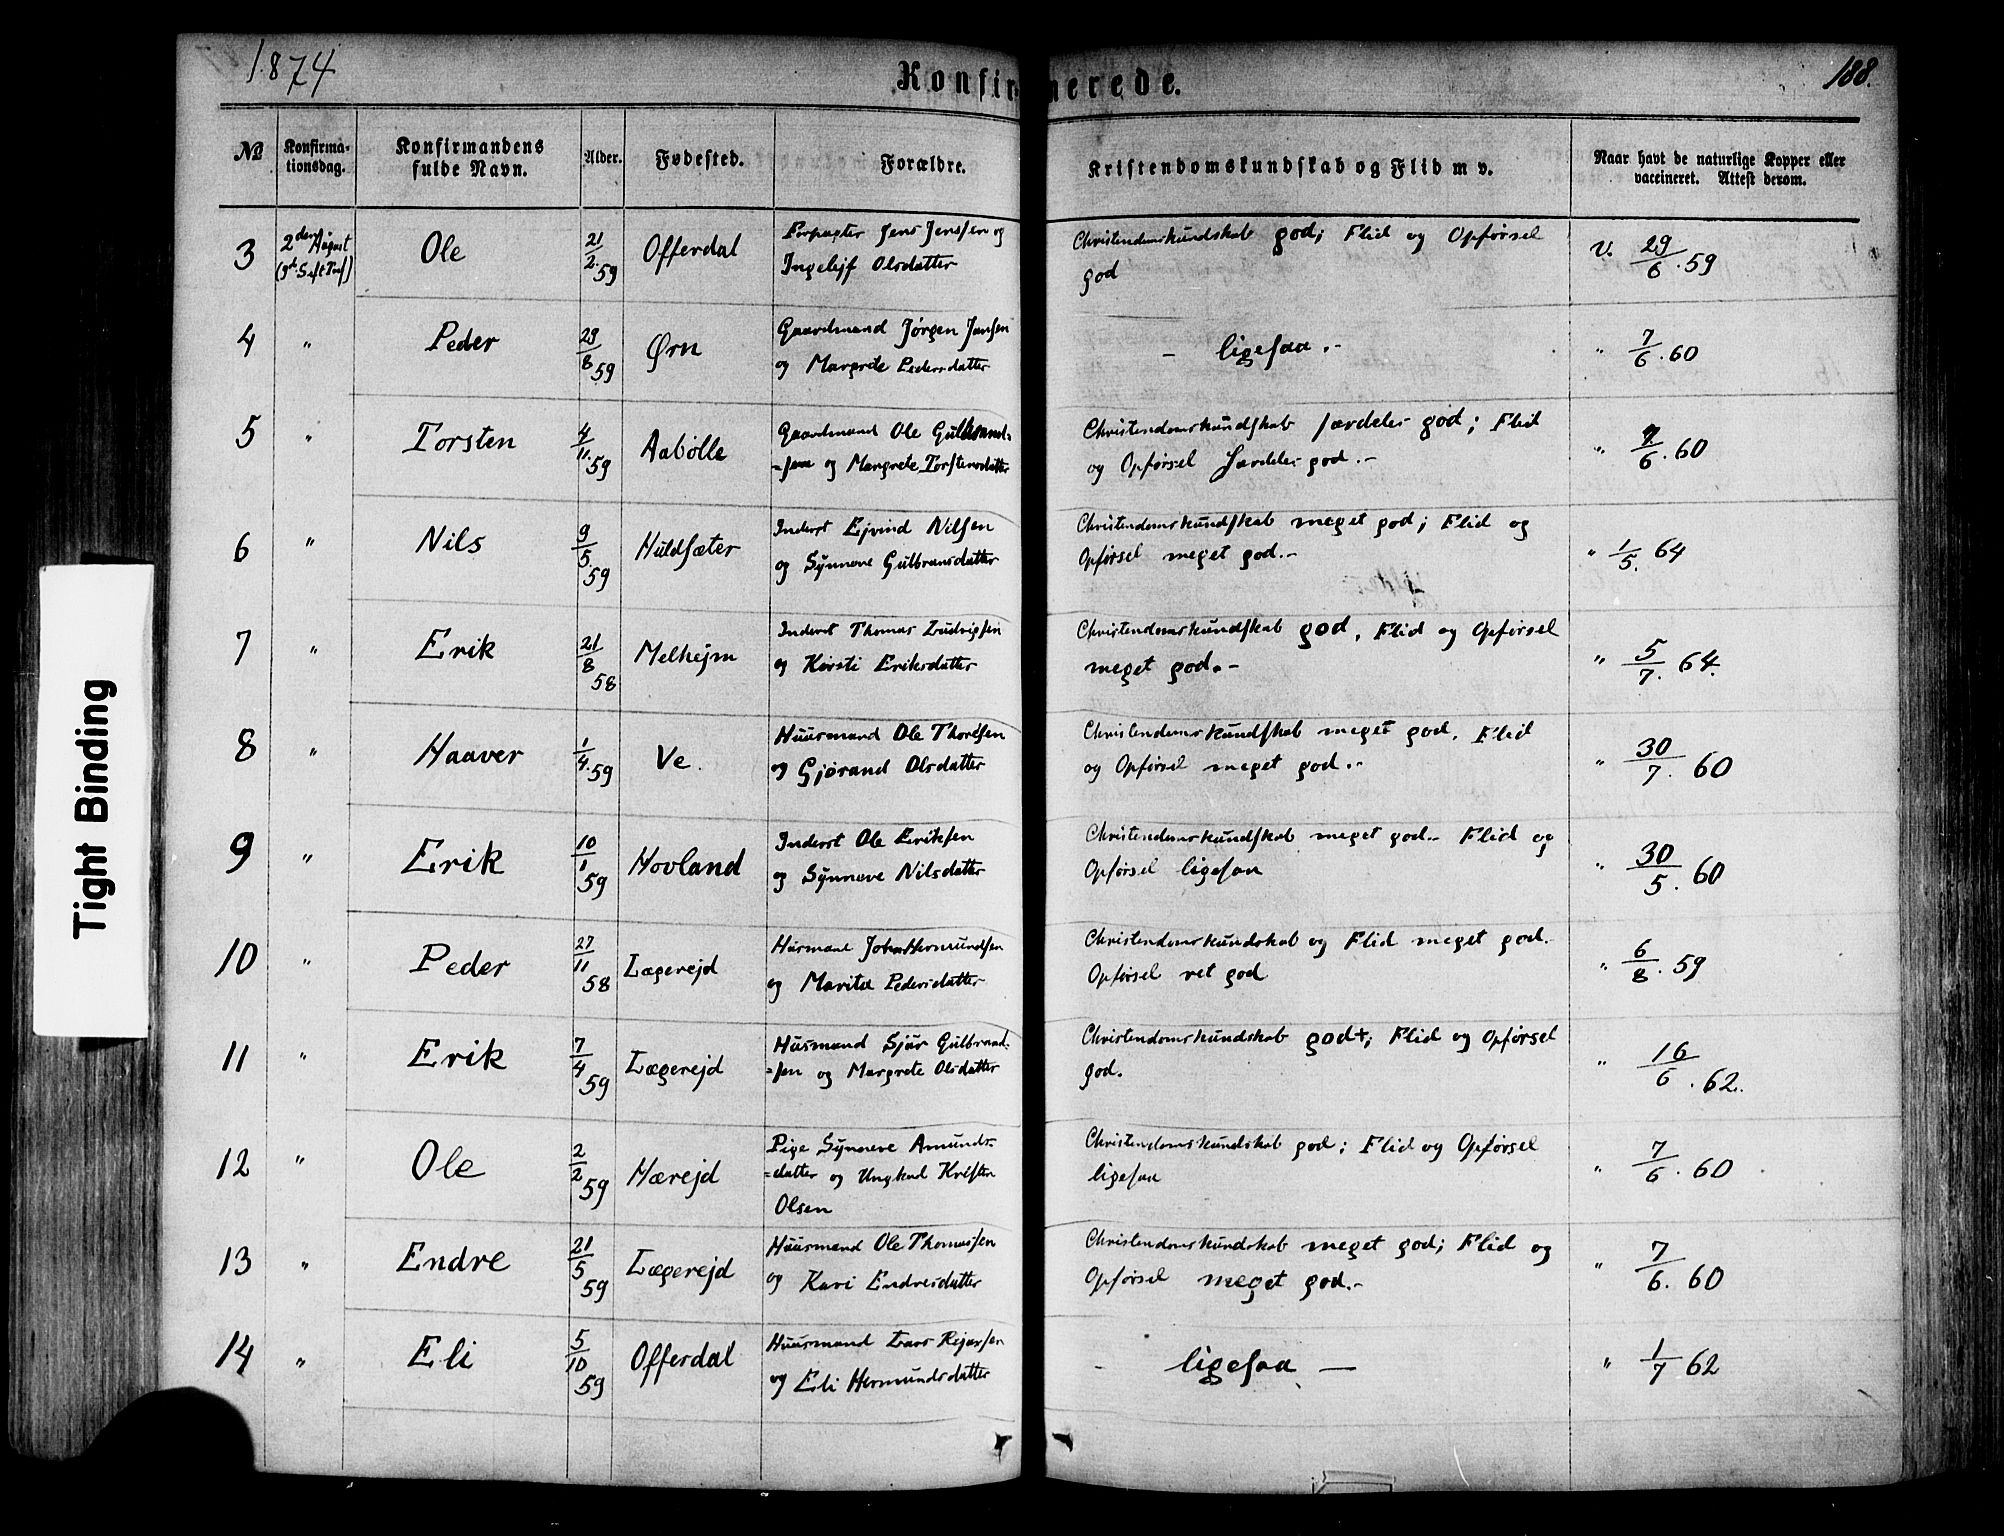 1874
Konfirmerede.
188.
No
Konfirma-
tionsdag.
Konfirmandens
fulde Navn.
Alder.
Fødested.
Forældre.
Kristendomskundskab og Flid m v.
Naar havt de naturlige Kopper eller
vaccineret. Attest derom.
3 2den August Ole 21/2.59 Offerdal Forpagter Jens Jenssen og Christendomskundskab god; Flid og Opførsel V. 29/6.59
Ingelejf Olsdatter god
4 " Peder 29/8 59 Ørn Gaardmand Jørgen Jansen - ligesaa.- " 7/6.60
og Margrete Pedersdatter
5 " Torsten 4/11.59 Aabølle Gaardmand Ole Gulbrand= Christendomskundskab særdeles god; Flid " 7/6.60
=sen og Margrete Torstensdatter og Opførsel Særdeles god.-
6 " Nils 9/5.59 Huldsæter Inderst Ejvind Nilsen Christendomskundskab meget god; Flid og " 1/5. 64
og Synneve Gulbransdatter Opførsel meget god.-
7 " Erik 21/8 58 Melhejm Inderst Thomas Ludvigsen Christendomskundskab god, Flid og Opførsel " 5/7. 64.
og Kirsti Eriksdatter meget god.-
8 " Haaver 1/4.59 Ve. Huusmand Ole Thorsen Christendomskundskab meget god, Flid " 30/7. 60
og Gjørand Olsdatter og Opførsel meget god.-
9 " Erik 10/1 59 Hovland Inderst Ole Eriksen Christendomskundskab meget god- Flid og " 30/5. 60
og Synneve Nilsdatter Opførsel ligesaa
10 " Peder 27/11 58 Lægrejd Husmand Johan Hermundsen Christendomskundskab og Flid meget god. " 6/8. 59
og Marita Pedersdatter Opførsel ret god
11 " Erik 7/4 59 Lægrejd Husmand Sjur Gulbrand= Christendomskundskab god+; Flid og Opførsel " 16/6. 62.
=sen og Margrete Olsdatter god.
12 " Ole 2/2 59 Hærejd Pige Synneve Amunds= Christendomskundskab god; Flid og Opførsel " 7/6. 60
=datter og Ungkarl Kristen ligesaa
Olsen
13 " Endre 21/5 59 Lægrejd Huusmand Ole Thomassen Christendomskundskab meget god; Flid og " 7/6. 60
og Kari Endresdatter Opførsel meget god.-
14 " Eli 5/10 59 Offerdal Huusmand Lars Rejarsen - ligesaa - " 1/7 62
og Eli Hermundsdatter
Tight Binding